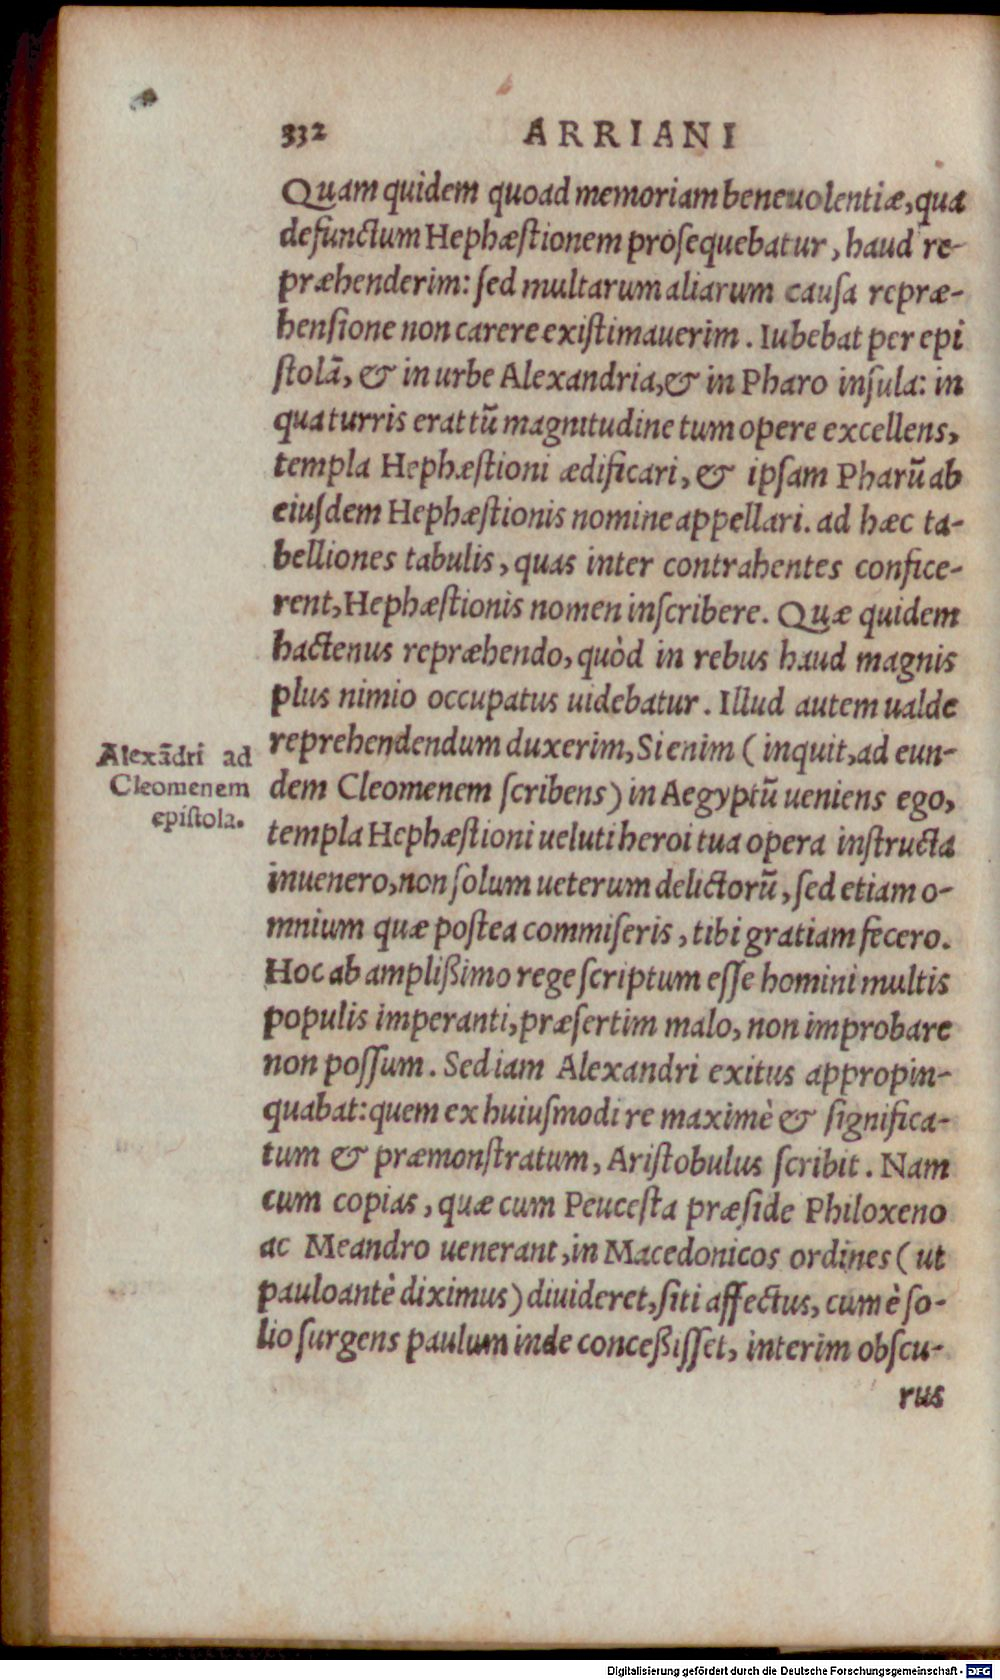 332 ARRIANI
Quam quidem quoad memoriam beneuolentiæ, qua
defunctum Hephæstionem prosequebatur, haud re-
præhenderim: sed multarum aliarum causa repræ-
hensione non carere existimauerim. Iubebat per epi
stolā, & in urbe Alexandria, & in Pharo insula: in
qua turris erat tū magnitudine tum opere excellens,
templa Hephæstioni ædificari, & ipsam Pharū ab
eiusdem Hephæstionis nomine appellari. ad hæc ta-
belliones tabulis, quas inter contrahentes confice-
rent, Hephæstionis nomen inscribere. Quæ quidem
hactenus repræhendo, quòd in rebus haud magnis
plus nimio occupatus uidebatur. Illud autem ualde
reprehendendum duxerim, Si enim (inquit, ad eun-
dem Cleomenem scribens) in Aegyptū ueniens ego,
templa Hephæstioni ueluti heroi tua opera instructa
inuenero, non solum ueterum delictorū, sed etiam o-
mnium quæ postea commiseris, tibi gratiam fecero.
Hoc ab amplißimo rege scriptum esse homini multis
populis imperanti, præsertim malo, non improbare
non possum. Sed iam Alexandri exitus appropin-
quabat: quem ex huiusmodi re maximè & significa-
tum & præmonstratum, Aristobulus scribit. Nam
cum copias, quæ cum Peucesta præside Philoxeno
ac Meandro uenerant, in Macedonicos ordines (ut
pauloantè diximus) diuideret, siti affectus, cum è so-
lio surgens paulum inde conceßisset, interim obscu-
rus
Alexādri ad
Cleomenem
epistola.
Digitalisierung gefördert durch die Deutsche Forschungsgemeinschaft - DFG